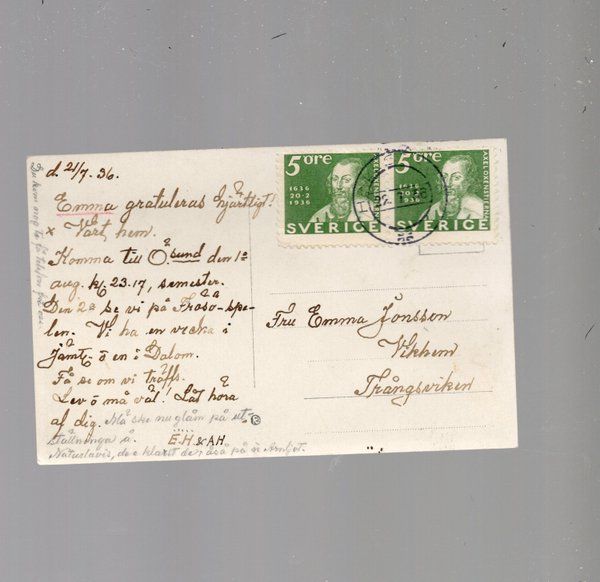 d. 21/7 - 36.
Emma gratuleras hjärtligt!
x Vårt hem.
Komma till Ö-sund den 1a
aug. kl. 23.17, semester.
Den 2a se vi på Frösö-spe-
len. Vi ha en vecka i
Jämt- ö en i Dalom.
Få se om vi träffs.
Lev ö må väl! Låt höra
af dig. Må ske nu glåm på ut-
ställninga å.
Naturlåvis, de e klart de å på Arnljot.
E.H & AH.
5 öre
1636
20-2
1936
SVERIGE
5 öre
1636
20-2
1936
SVERIGE
AXEL OXENSTIERNA
Fru Emma Jonsson
Vikhem
Trångsviken